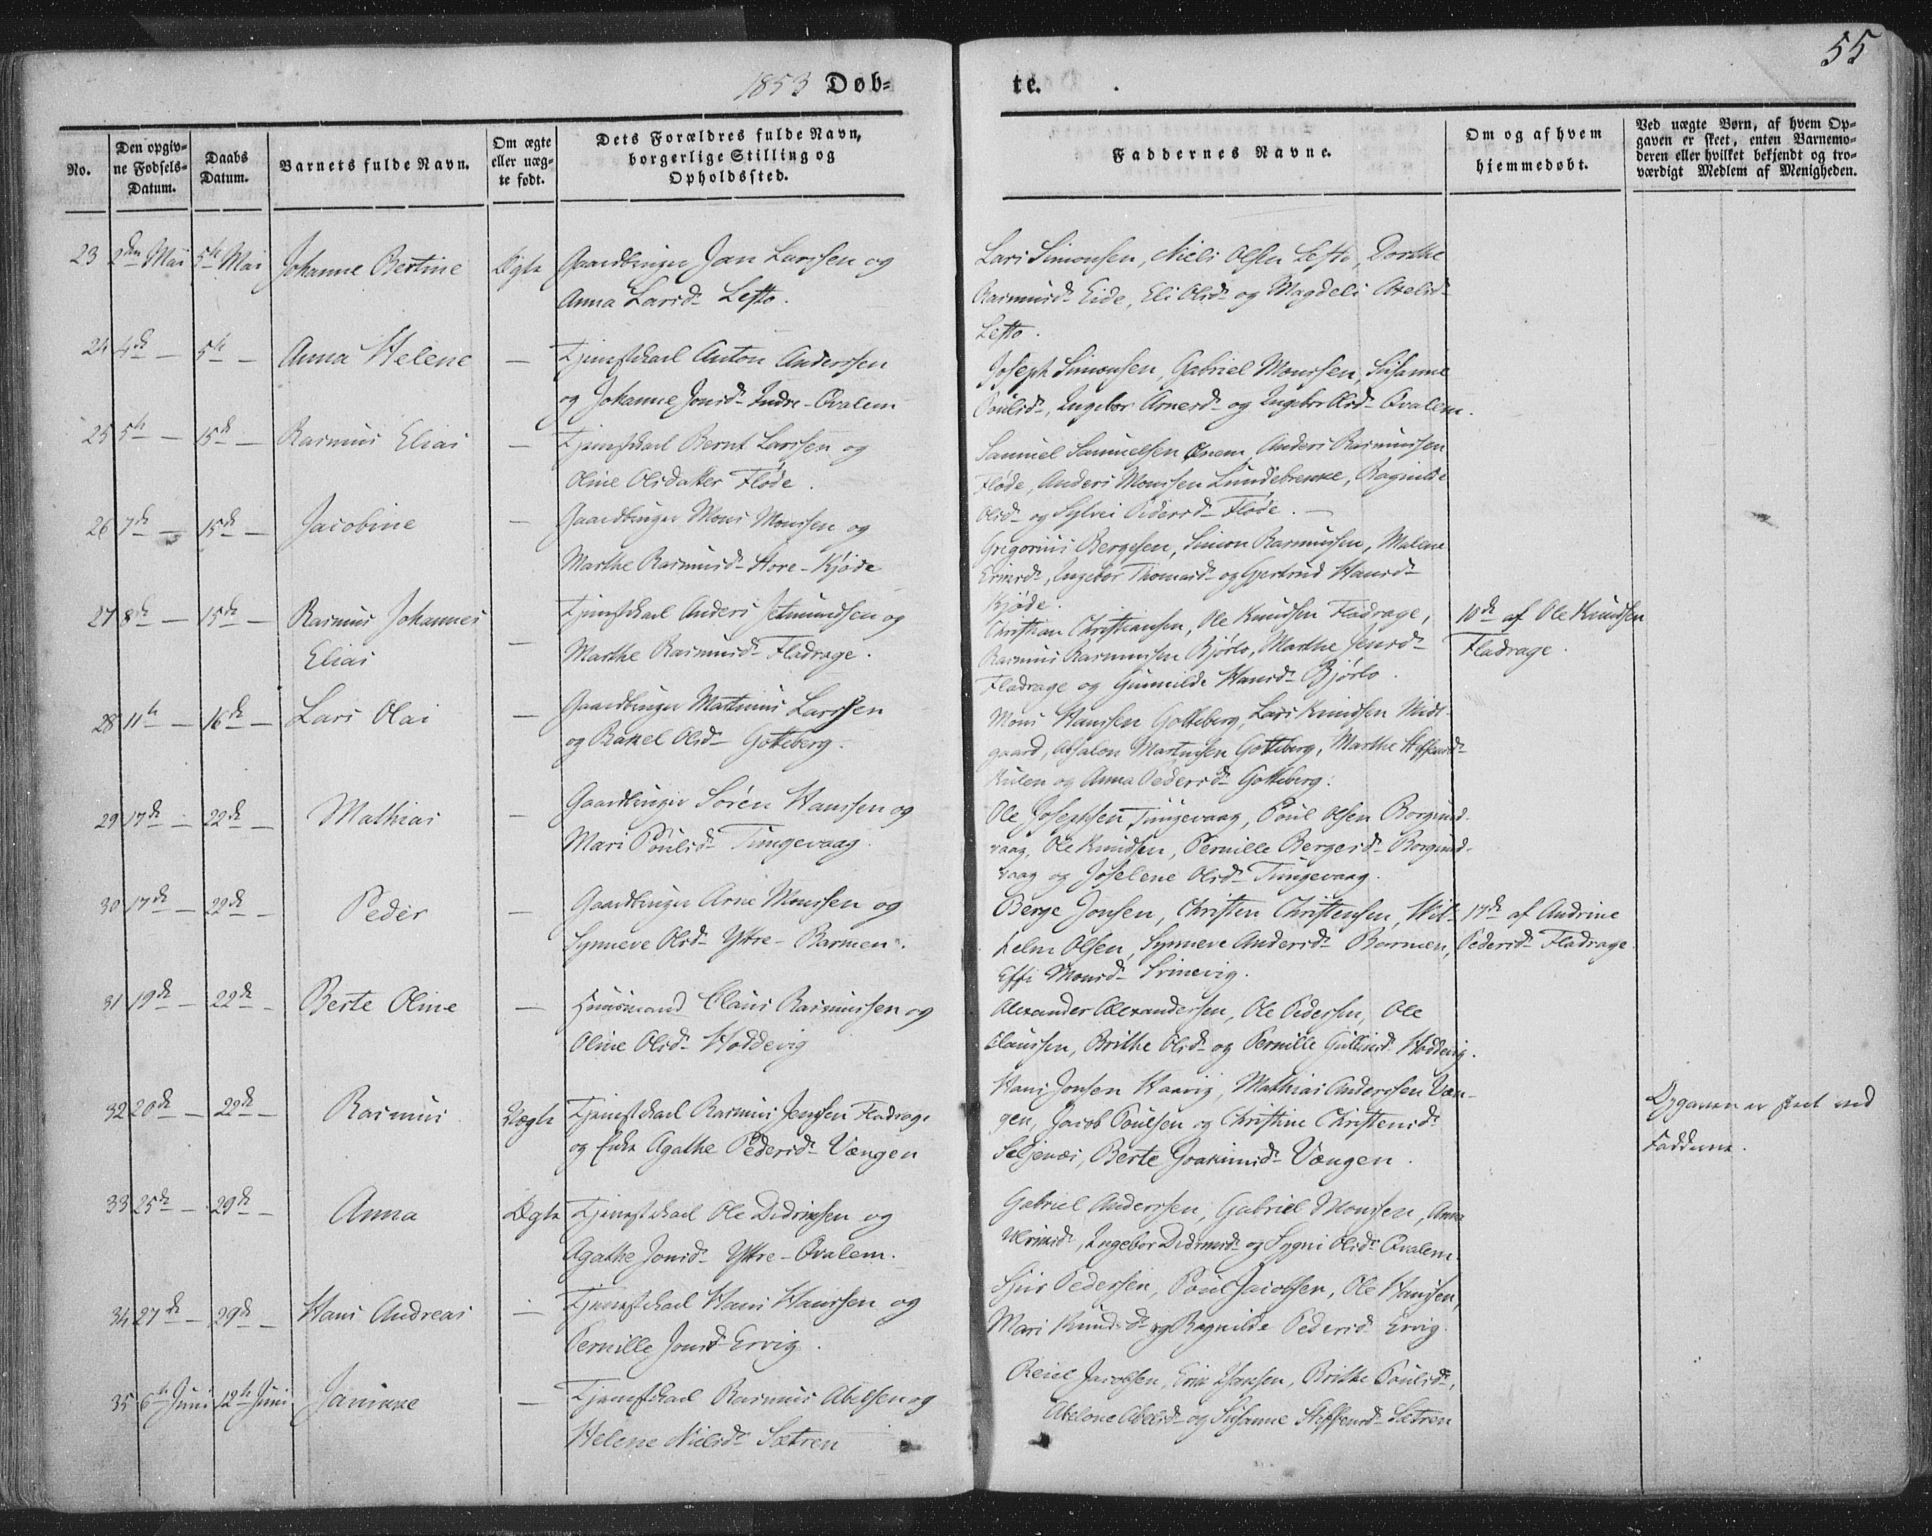 1853 Døb-
te.
55
No.
Den opgiv-
ne Fødsels-
Datum.
Daabs
Datum.
Barnets fulde Navn.
Om ægte
eller uæg-
te født.
Dets Forældres fulde Navn,
borgerlige Stilling og
Opholdssted.
Faddernes Navne.
Om og af hvem
hjemmedøbt.
Ved uægte Børn, af hvem Op-
gaven er skeet, enten Barnemo-
deren eller hvilket bekjendt og tro-
værdigt Medlem af Menigheden.
23 2den Mai 5te Mai Johanne Bertine Ægte Gaardbruger Jan Larssen og
Anna Larsd. Lefto.
Lars Simonsen, Niels Olsen Lefto, Dorthe
Rasmusd. Eide, Eli Olsd. og Magdeli Axelsd.
Lefto.
24 4de — 5te — Anna Helene — Tjenestkarl Anton Anderssen
og Johanne Jonsd. Indre-Qvalem
Joseph Simonsen, Gabriel Monssen, Susanne
Poulsd., Ingebor Arnesd. og Ingebor Olsd. Qvalem.
25 5te — 15de — Rasmus Elias — Tjenestkarl Bernt Larssen og
Oline Olsdatter Fløde.
Samuel Samuelsen, Anders Rasmussen
Fløde, Anders Monssen Lundebrekke, Ragnilde
Olsd. og Sylvei Pedersd. Fløde. —
26 7de — 15de — Jacobine — Gaardbruger Mons Monssen og
Marthe Rasmusd. Store-Kjøde
Gregorius Bergesen, Simon Rasmussen, Malene
Ingebor Thomasd. og Gjertrud Hansd.
Kjøde.
27 8de — 15de — Rasmus Johannes
Elias — Tjenestkarl Anders Jetmundsen og
Marthe Rasmusd. Fladrage.
Christian Christiansen, Ole Knudsen Fladrage,
Rasmus Rasmussen Bjørlo, Marthe Jensd.
Fladrage og Gunnilde Hansd. Bjørlo.
10de af Ole Knudsen
Fladrage.
28 11te — 16de — Lars Olai — Gaardbruger Mathias Larssen
og Rakel Olsd. Gotteberg.
Mons Hanssen Gotteberg, Lars Knudsen Midt-
gaard, Absalon Gotteberg, Marthe Steffensd.
og Anna Pedersd. Gotteberg.
29 17de — 22de — Mathias — Gaardbruger Søren Hanssen og
Mari Poulsd. Tungevaag.
Ole Josephsen Tungevaag, Poul Olsen Borgund-
vaag, Ole Knudsen, Pernille Bergesd. Borgund-
vaag og Joselene Olsd. Tungevaag.
30 17de — 22de — Peder — Gaardbruger Arne Monssen og
Synneve Olsd. Ytre-Barmen.
Berge Jonsen, Christen Christensen, Wil-
helm Olsen, Synneve Andersd. Barmen,
Effi Monsd.
17de af Andrine
Pedersd. Fladrage
31 19de — 22de — Berte Oline — Huusmand Claus Rasmussen og
Oline Olsd. Hoddevig
Alexander Alexandersen, Ole Pedersen, Ole
Claussen, Brithe Olsd. og Pernille Hoddevig.
32 20de — 22de — Rasmus Uægte Tjenestkarl Rasmus Jenssen Fladrage
og Enke Agathe Pedersd. Vængen
Hans Jonsen Haavig, Mathias Anderssen Væn-
gen, Jacob Poulsen og Christine Christensd.
Seljenæs, Berte Joakimsd. Vængen.
Opgaven er skeet ved
Fadderne.
33 25de — 29de — Anna Ægte Tjenestkarl Ole Didriksen og
Agathe Jonsd. Ytre-Qvalem.
Gabriel Anderssen, Gabriel Monssen, Anna
Ulriksd., Ingebor Didriksd. og Sygni Olsd. Qvalem.
34 27de — 29de — Hans Andreas — Tjenestkarl Hans Hanssen og
Pernille Jonsd. Ervig.
Sjur Pedersen, Poul Jacobsen, Ole Hanssen,
Mari Knudsd. og Ragnilde Pedersd. Ervig.
35 6te Juni 12te Juni Janikke — Tjenestkarl Rasmus Abelsen og
Helene Nielsd. Sætren
Jacobsen, Erik Hansen, Brithe Poulsd.,
Abelone Abelsd. og Susanne Steffensd. Sætren